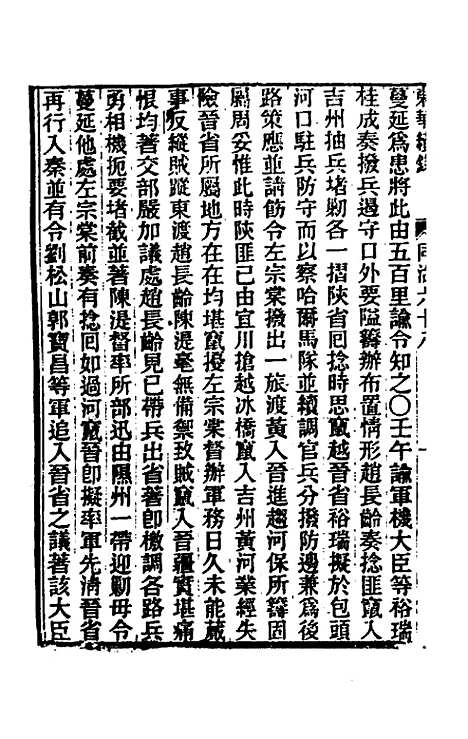 東華續錄　同治六十八
蔓延爲患將此由五百里諭令知之〇壬午諭軍機大臣等裕瑞
桂成奏撥兵邊守口外要隘籌辦布置情形趙長齡奏捻匪竄入
吉州抽兵堵勦各一摺陝省回捻時思竄越晉省裕瑞擬於包頭
河口駐兵防守而以察哈爾馬隊並續調官兵分撥防邊兼爲後
路策應並請飭令左宗棠撥出一旅渡黃入晉進趨河保所籌固
屬周妥惟此時陝匪已由宜川搶越冰橋竄入吉州黃河業經失
險晉省所屬地方在在均堪竄擾左宗棠督辦軍務日久未能蕆
事反縱賊蹤東渡趙長齡陳湜毫無備禦致賊竄入晉疆實堪痛
恨均著交部嚴加議處趙長齡見已帶兵出省著卽檄調各路兵
勇相機扼要堵截並著陳湜督率所部迅由隰州一帶迎勦毋令
蔓延他處左宗棠前奏有捻回如過河竄晉卽擬率軍先清晉省
再行入秦並有令劉松山郭寶昌等軍追入晉省之議著該大臣